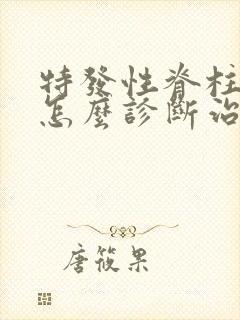 特發性脊柱
怎麼診斷治
唐筱果